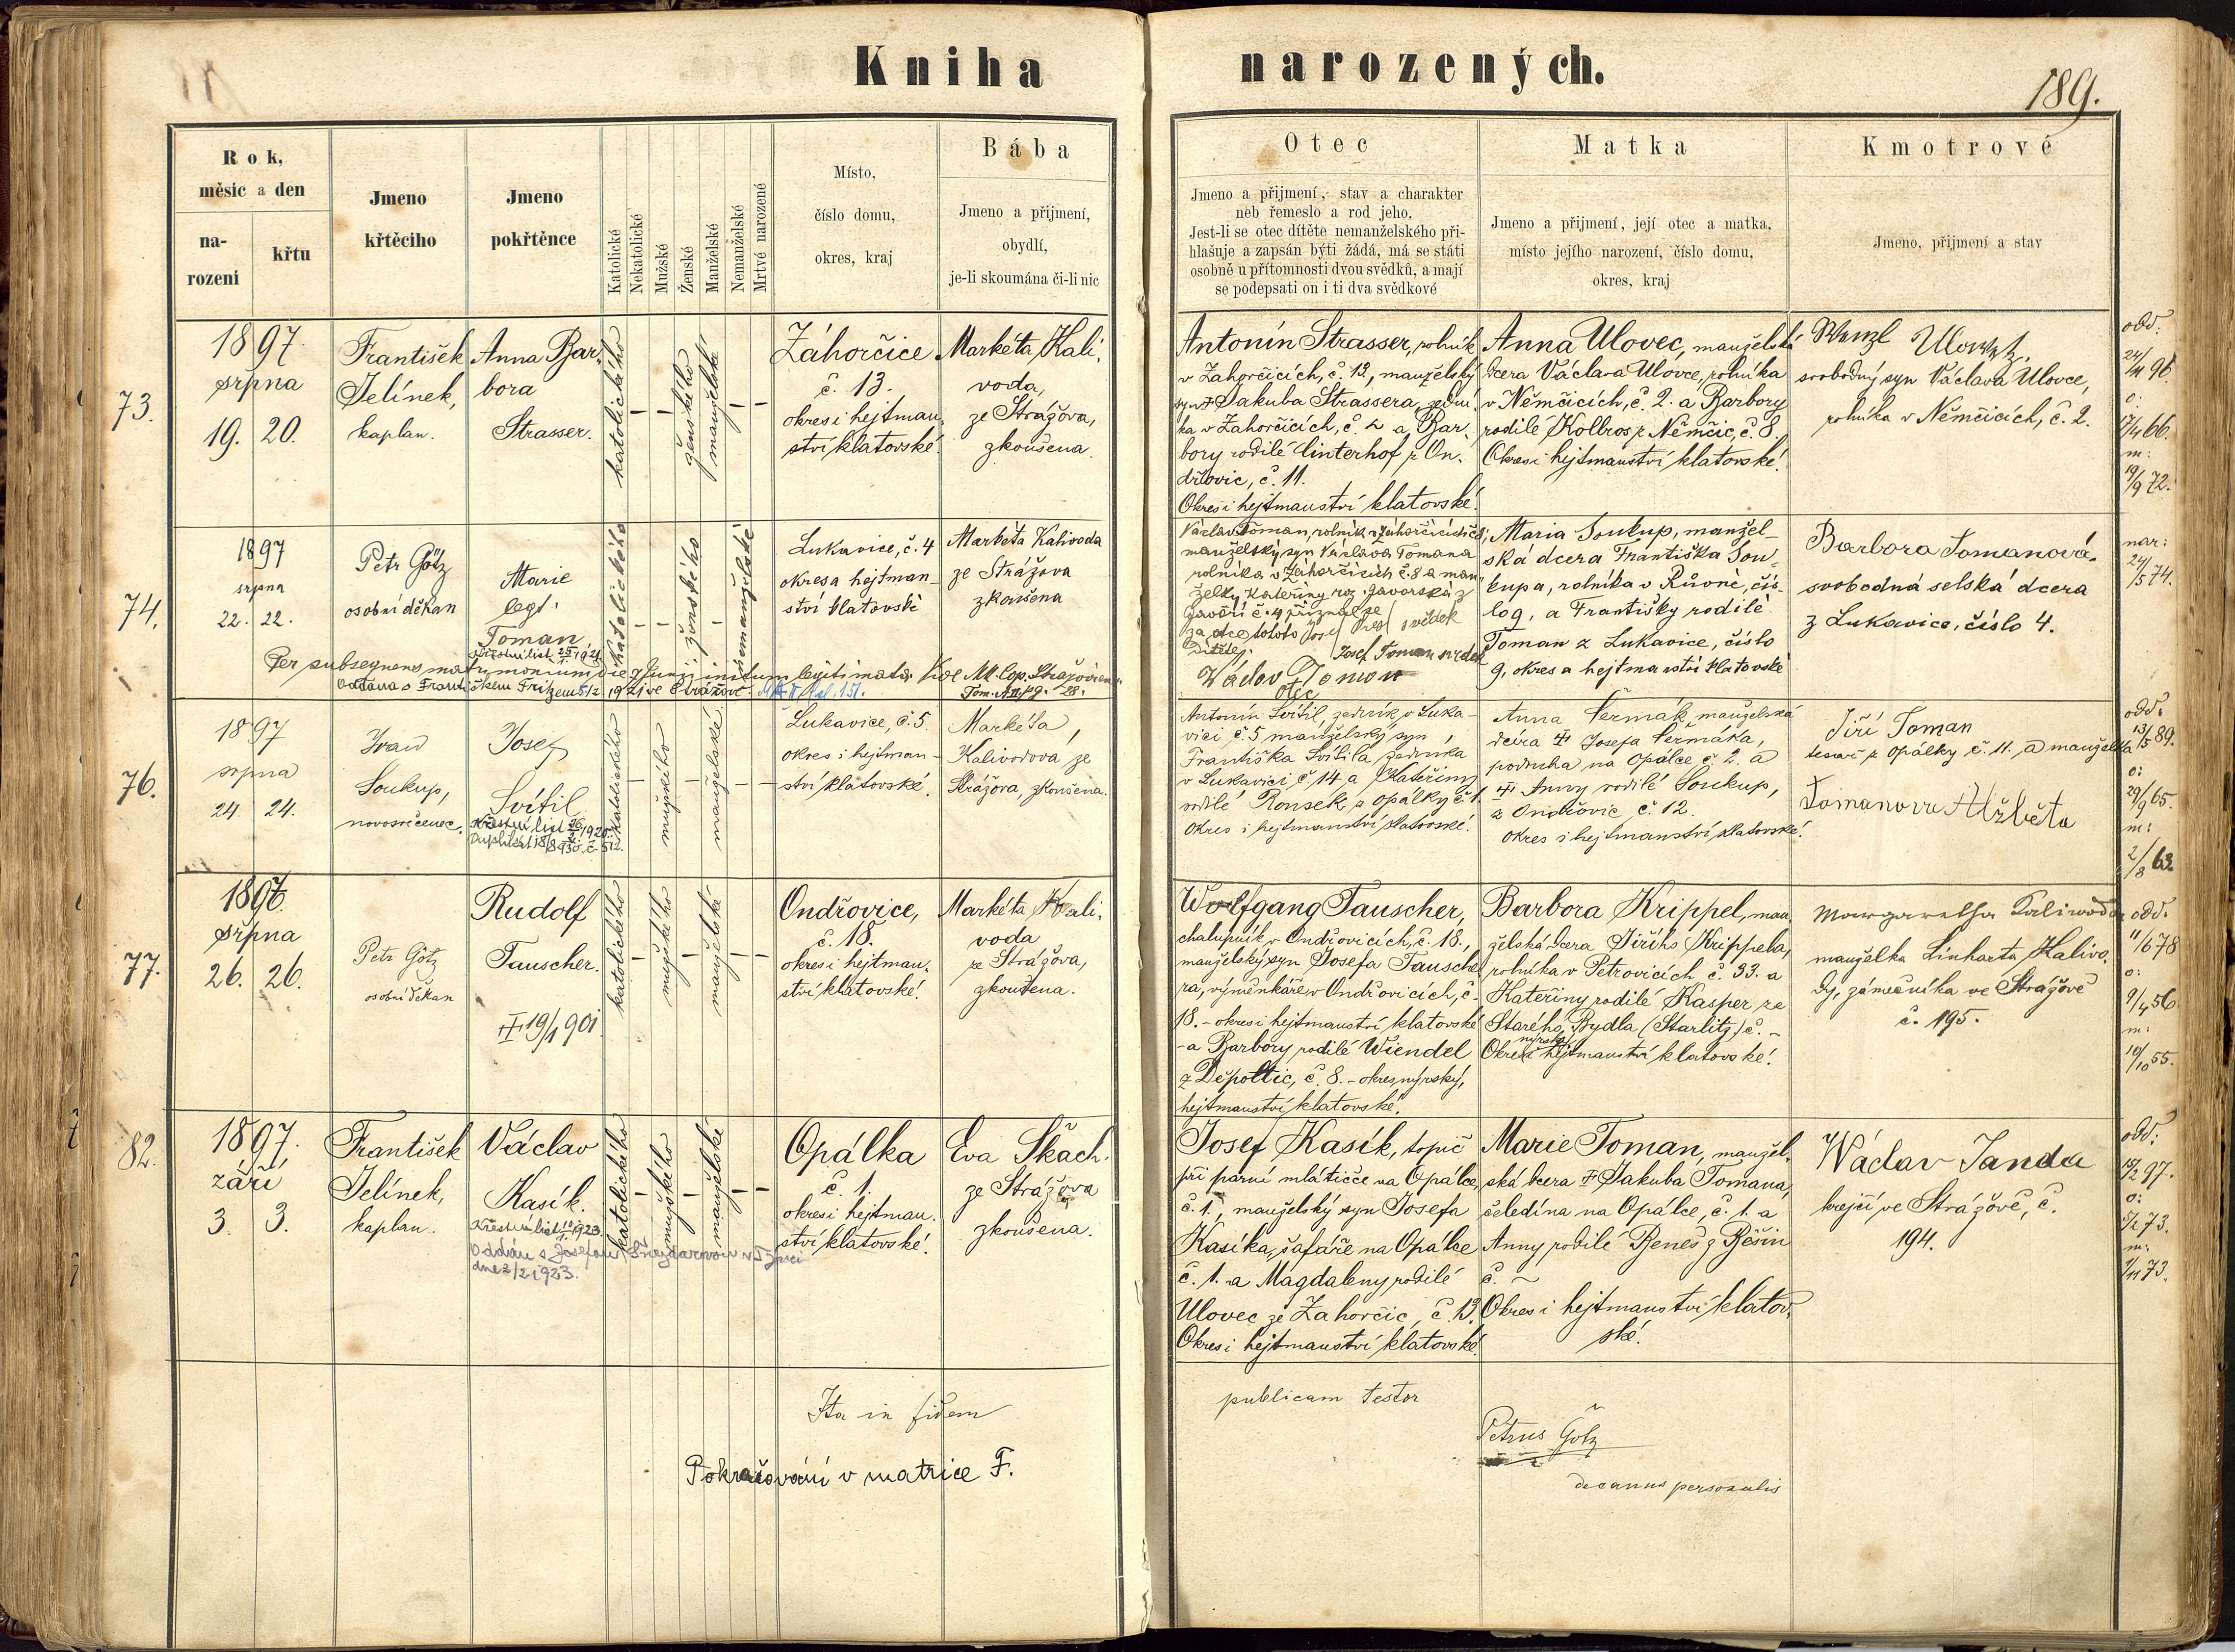 Kniha narozených.
189.
Rok,
měsíc a den
na-
rození
křtu
Jmeno
křtěcího
Jmeno
pokřtěnce
Katolické
Nekatolické
Mužské
Ženské
Manželské
Nemanželské
Mrtvé narozené
Místo,
číslo domu,
okres, kraj
Bába
Jmeno a přijmení,
obydlí,
je-li skoumána či-li nic
Otec
Jmeno a přijmení, stav a charakter
neb řemeslo a rod jeho.
Jest-li se otec dítěte nemanželského při-
hlašuje a zapsán býti žádá, má se státi
osobně u přítomnosti dvou svědků, a mají
se podepsati on i ti dva svědkové
Matka
Jmeno a přijmení, její otec a matka,
místo jejího narození, číslo domu,
okres, kraj
Kmotrové
Jmeno, přijmení a stav
73.
1897.
srpna
19. 20.
František
Jelínek,
kaplan.
Anna Bar-
bora
Strasser.
katolického
ženského
manželské
Záhorčice
č. 13.
okres i hejtman.
ství klatovské.
Markéta Kali.
voda,
ze Strážova,
zkoušena.
Antonín Strasser, rolník
v Zahorčicích, č. 13., manželský
syn Jakuba Strassera, sedlá-
ka v Zahorčicích, č. 2 a Bar.
bory rodilé Hinterhof z On.
dřovic, č. 11.
Okres i hejtmanství klatovské.
Anna Ulovec, manželská
dcera Václava Ulovce, rolníka
v Němčicích, č. 2. a Barbory
rodilé Kollros z Němčic, č. 8.
Okres i hejtmanství klatovské.
Wenzl Ulowetz,
svobodný syn Václava Ulovce,
rolníka v Němčicích, č. 2.
odd:
24/11 96.
o:
17/4 66.
m:
19/9 72.
74.
1897
srpna
22. 22.
Petr Götz
osobní děkan
Marie
legt.
Toman,
Křestní list
katolického
ženského
nemanželské
Lukavice, č. 4
okres a hejtman-
ství klatovské
Markéta Kalivoda
ze Strážova
zkoušena
Václav Toman, rolník v Záhorčicích č. 8,
manželský syn Václava Tomana
rolníka v Záhorčicích č. 8 a man
želky Kateřiny roz. Javorská z
Javoří č. 4 přiznal se
za otce tohoto
dítěte.
svědek
Josef Toman svědek
Václav Toman
otec
Maria Soukup, manžel-
ská dcera Františka Sou-
kupa, rolníka v Růvně, čís-
lo 9, a Františky rodilé
Toman z Lukavice, číslo
9, okres a hejtmanství klatovské
Barbora Tomanová
svobodná selská dcera
z Lukavice, číslo 4.
nar:
24/5 74.
Per subsequens matrimonium die 9 Junii initum legitimata.
Oddána s Františkem Fritzem 5/2 1921 ve Strážově
76.
1897
srpna
24. 24.
Ivan
Soukup,
novosvěcenec.
Josef
Svítil
Křestní list
katolického
mužského
manželské
Lukavice, č. 5
okres i hejtman-
ství klatovské.
Markéta
Kalivodova ze
Strážova, zkoušena.
Antonín Svítil, zedník v Luka-
vici č. 5 manželský syn
Františka Svítila, zedníka
v Lukavici č. 14 a Kateřiny
rodilé Rousek z Opálky č. 1.
Okres i hejtmanství klatovské.
Anna Čermák manželská
dcéra Josefa Čermáka,
podruha na Opálce č. 2. a
Anny rodilé Soukup,
z Ondřovic, č. 12.
Okres i hejtmanství klatovské.
Jiří Toman
tesař z Opálky č. 11. a manželka
Tomanova Alžběta
odd:
13/5 89.
o:
29/9 65.
m:
2/8 63.
77.
1897.
srpna
26. 26.
Petr Götz
osobní děkan
Rudolf
Tauscher.
19/1 901
katolického
mužského
manželské
Ondřovice,
č. 18.
okres i hejtman.
ství klatovské.
Markéta Kali.
voda
ze Strážova,
zkoušena.
Wolfgang Tauscher,
chalupník v Ondřovicích, č. 18.,
manželský syn Josefa Tausche
ra, výměnkáře v Ondřovicích, č.
18. - okres i hejtmanství klatovské
- a Barbory rodilé Wiendel
z Děpoltic, č. 8. - okres nýrský,
hejtmanství klatovské.
Barbora Krippel, man.
želská dcera Jiřího Krippela,
rolníka v Petrovicích č. 33. a
Kateřiny rodilé Kasper ze
Starého Bydla (Starlitz) č. -
Okres nýrský hejtmanství klatovské.
Margaretha Kaliwoda
manželka Linharta Kalivo.
dy, zámečníka ve Strážově
č. 195.
odd.
11/6 78
o:
9/4 56
m:
10/10 55.
82.
1897.
září
3. 3.
František
Jelínek,
kaplan.
Václav
Kasík.
Křestní list 1923
Oddán s Josefou Šnajdarovou v Týnci
dne 3/2 1923.
katolického
mužského
manželské
Opálka
č. 1.
okres i hejtman.
ství klatovské.
Eva Skach.
ze Strážova
zkoušena.
Josef Kasík, topič
při parní mlátičce na Opálce,
č. 1., manželský syn Josefa
Kasíka, šafáře na Opálce
č. 1. a Magdaleny rodilé
Ulovec ze Zahorčic, č. 13.
Okres i hejtmanství klatovské.
Marie Toman, manžel.
ská dcera Jakuba Tomana,
čeledína na Opálce, č. 1. a
Anny rodilé Beneš z Běšin
č. ~
Okres i hejtmanství klatov.
ské.
Wáclav Janda
krejčí ve Strážově, č.
194.
odd:
o:
m:
Ita in fidem publicam testor
Petrus Götz
decanus personalis
Pokračování v matrice F.